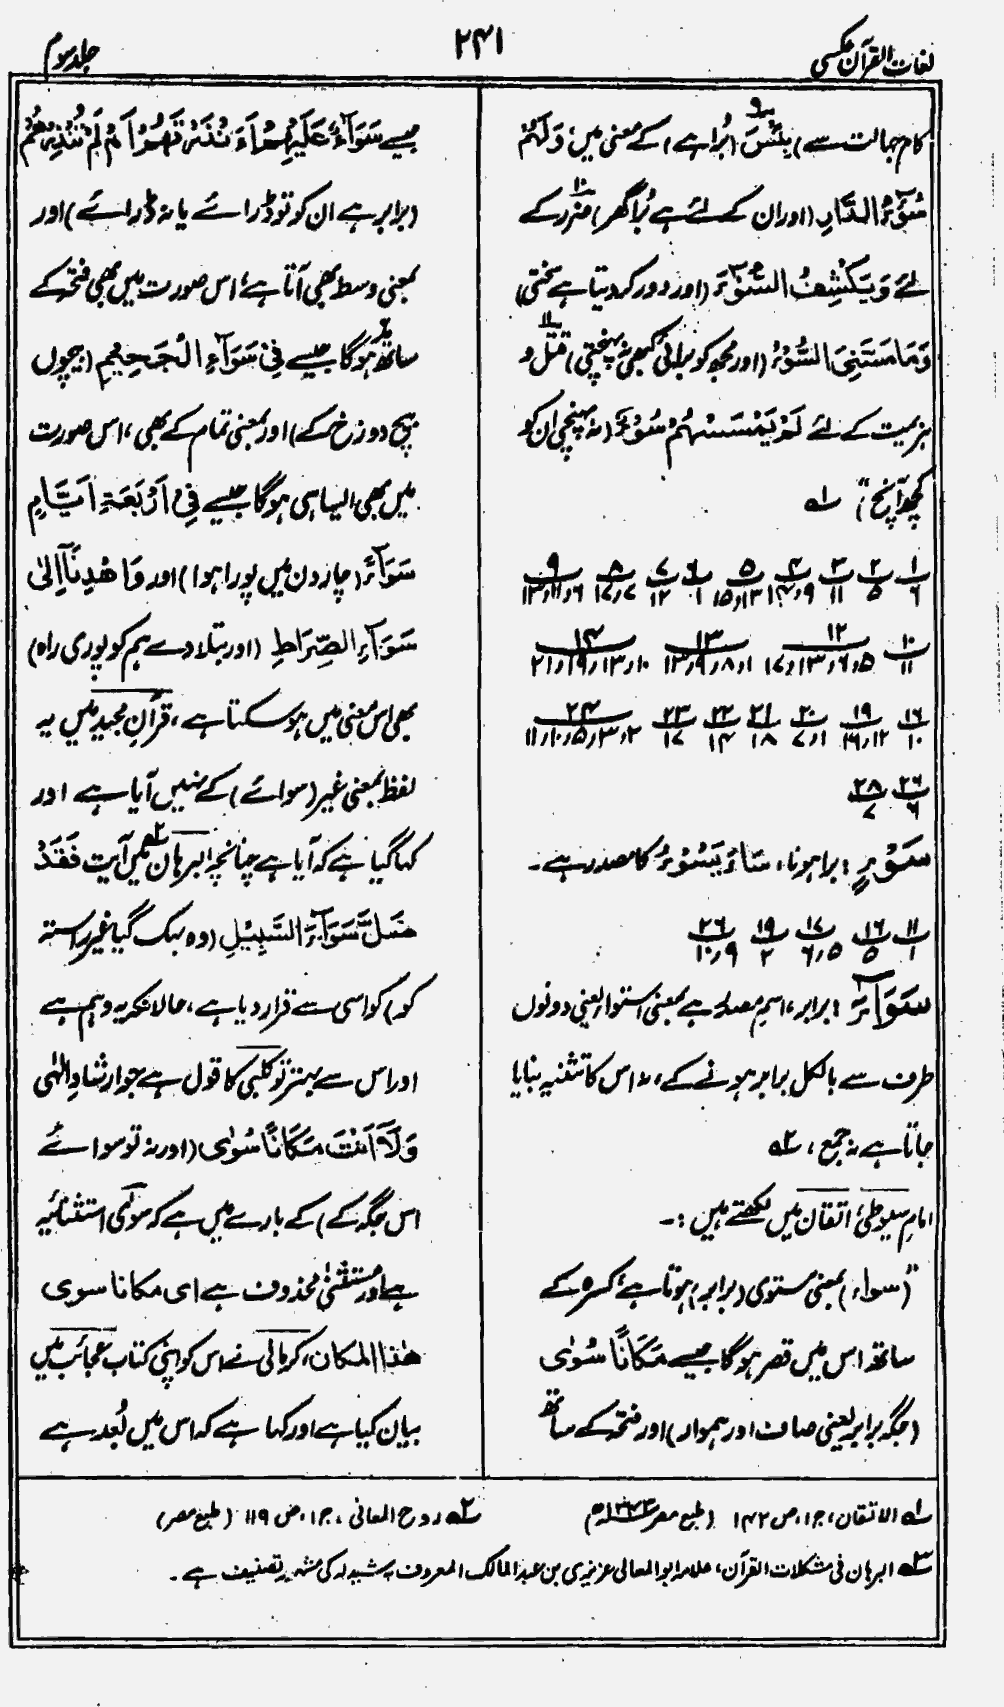 لغات القرآن عکسی
۲۴۱
جلد سوم
کام جہالت سے) بِئْسَ (بُرا ہے) کے معنی میں وَلَهُمْ
سُوْٓءُ الدَّارِ (اور ان کے لئے ہے بُرا گھر) ضرر کے
لئے وَیَکْشِفُ السُّوْٓءَ (اور دور کر دیتا ہے سختی)
وَمَا مَسَّنِیَ السُّوْٓءُ (اور مجھ کو برائی کبھی نہ پہنچتی) قتل و
ہزیمت کے لئے لَمْ یَمْسَسْهُمْ سُوْٓءٌ (نہ پہنچی ان کو
کچھ آنچ" ) لہ
۱/۶ ۲/۵ ۳/۱۱ ۴/۹،۱۴ ۵/۱۳،۱۵ ۶/۱ ۷/۱۲ ۸/۷،۱۷ ۹/۶،۱۱،۱۳
۱۰/۱۱ ۱۲/۵،۶،۱۳،۱۷ ۱۳/۱،۸،۹،۱۳ ۱۴/۱۰،۱۳،۱۹،۲۱
۱۶/۱۰ ۱۹/۱۲،۱۶ ۲۰/۱،۷ ۲۱/۱۸ ۲۲/۱۴ ۲۳/۱۷ ۲۴/۲،۳،۵،۱۰،۱۱
۲۶/۶ ۲۸/۷
سَوْءٍ : برا ہونا، سَاءَ یَسُوْءُ کا مصدر ہے۔
۱۱/۱ ۱۶/۵ ۱۷/۵،۶ ۱۹/۲ ۲۶/۹،۱۰
سَوَآءٌ : برابر، اسم مصدر ہے بمعنی استواء یعنی دونوں
طرف سے بالکل برابر ہونے کے، نہ اس کا تثنیہ بنایا
جاتا ہے نہ جمع، ۲ہ
امام سیوطیؒ اتقان میں لکھتے ہیں :۔
"(سواء) بمعنی مستوی (برابر) ہوتا ہے، کسرہ کے
ساتھ اس میں قصر ہوگا جیسے مَکَانًا سُوًی
(جگہ برابر یعنی صاف اور ہموار) اور فتحہ کے ساتھ
جیسے سَوَآءٌ عَلَیْهِمْ ءَاَنْذَرْتَهُمْ اَمْ لَمْ تُنْذِرْهُمْ
(برابر ہے ان کو تو ڈرائے یا نہ ڈرائے) اور
بمعنی وسط بھی آتا ہے، اس صورت میں بھی فتحہ کے
ساتھ مد ہوگا جیسے فِیْ سَوَآءِ الْجَحِیْمِ (بیچوں
بیچ دوزخ کے) اور بمعنی تمام کے بھی، اس صورت
میں بھی ایسا ہی ہوگا جیسے فِیْٓ اَرْبَعَةِ اَیَّامٍ
سَوَآءً (چار دن میں پورا ہوا) اور وَاهْدِنَآ اِلٰی
سَوَآءِ الصِّرَاطِ (اور بتلا دے ہم کو پوری راہ)
بھی اس معنی میں ہو سکتا ہے، قرآن مجید میں یہ
لفظ بمعنی غیر (سوائے) کے نہیں آیا ہے اور
کہا گیا ہے کہ آیا ہے چنانچہ البرہان ۳ہ میں آیت فَقَدْ
ضَلَّ سَوَآءَ السَّبِیْلِ (وہ بہک گیا غیر راستہ
کو) کو اسی سے قرار دیا ہے، حالانکہ یہ وہم ہے
اور اس سے بہتر تو کلبی کا قول ہے جو ارشاد الٰہی
وَلَآ اَنْتَ مَکَانًا سُوًی (اور نہ تو سوائے
اس جگہ کے) کے بارے میں ہے کہ سوٰی استثنائیہ
ہے اور مستثنٰی محذوف ہے ای مکانا سوی
ھٰذا المکان، کرمانی نے اس کو اپنی کتاب عجائب میں
بیان کیا ہے اور کہا ہے کہ اس میں بُعد ہے
۱ہ الاتقان، ج۱، ص ۱۴۲ (طبع مصر)
۲ہ روح المعانی، ج۱، ص ۱۱۹ (طبع مصر)
۳ہ البرہان فی مشکلات القرآن، علامہ ابو المعالی عزیزی بن عبد المالک المعروف بہ شیدلہ کی تصنیف ہے۔